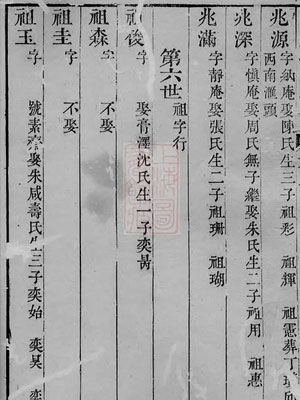 兆源 字納庵娶陳氏生三子祖彩 祖輝 祖憲葬丁
西南滙頭
兆深 字慎庵娶周氏無子繼娶朱氏生二子祖用 祖惠
兆滿 字靜庵娶張氏生二子祖珊 祖瑚
第六世 祖字行
祖俊 字 娶膏澤沈氏生一子奕昺
祖森 字 不娶
祖圭 字 不娶
祖玉 字 號素齋娶朱咸壽氏生三子奕始 奕昊 奕